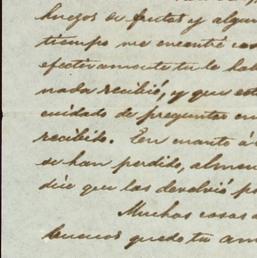 huezos de frutas y algun
tiempo me encontré cas
efectivamente tu le hab
nada recibió, y que est
cuidado de preguntar en
recibido. En cuanto á
se han perdido, almen
dice que las devolvió po
Muchas cosas a
buenos quedo tu am